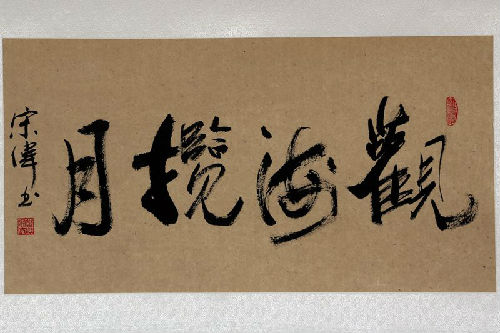 觀海攬月
宗偉书